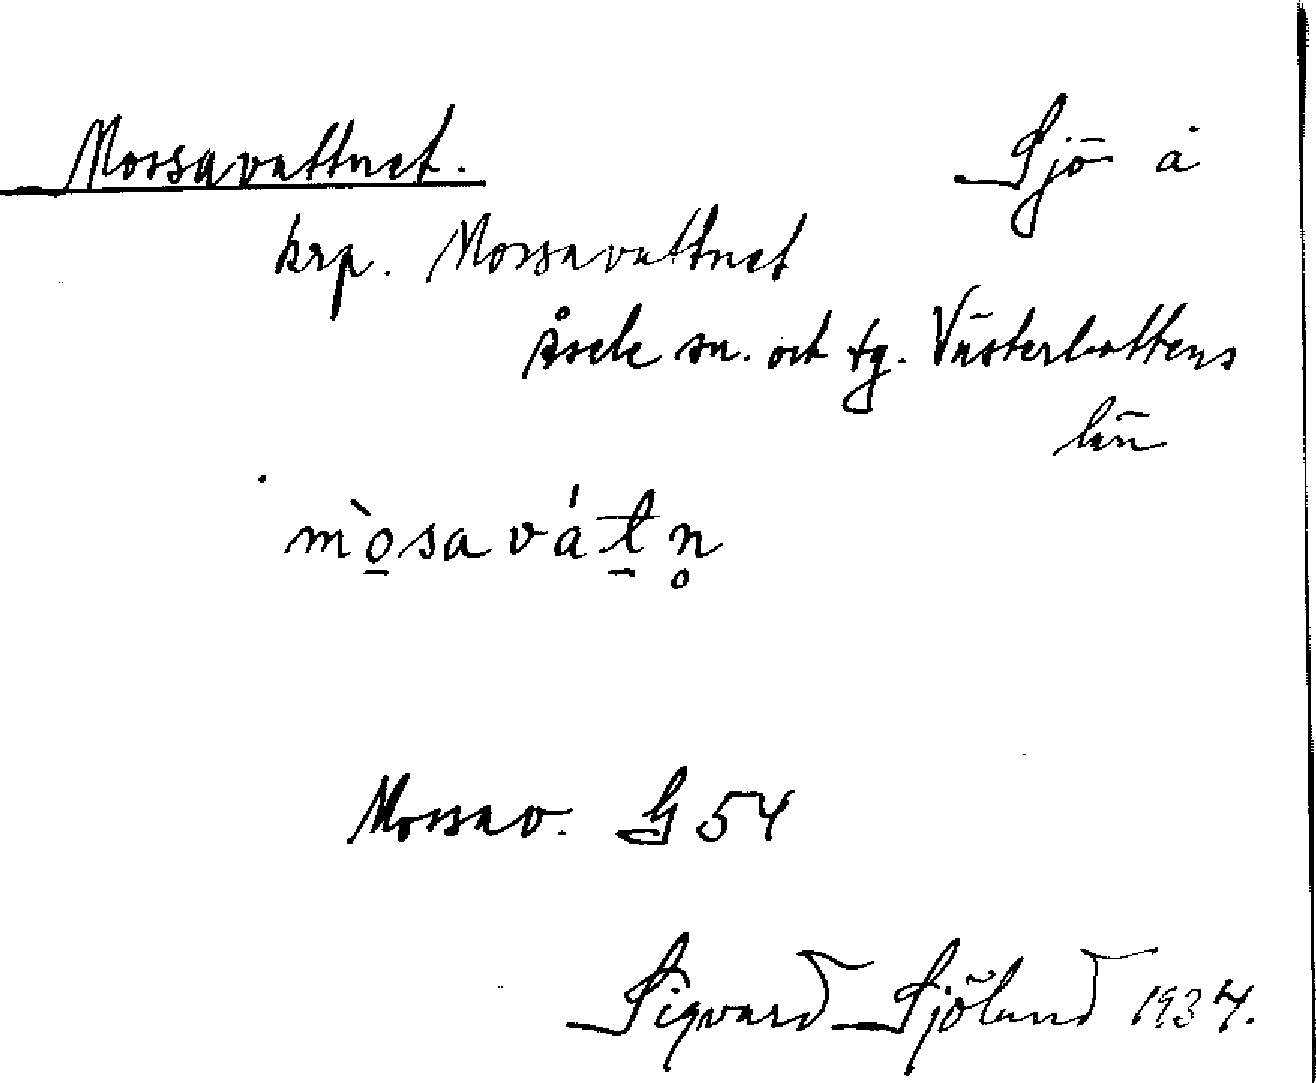 Mossavattnet. Sjö å
krp. Mossavattnet
Åsele sn. och tg. Västerbottens
län
mòsavátn̥
Mossav. G 54
Sigvard Sjölund 1934.